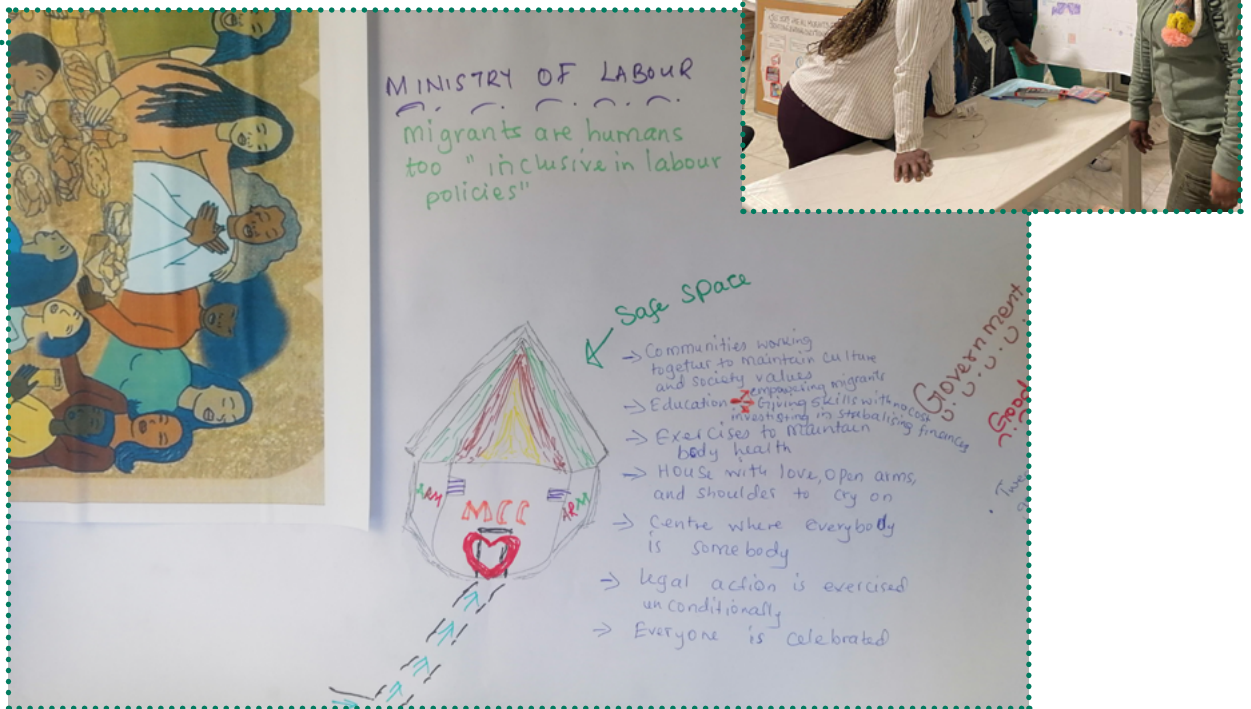 MINISTRY OF LABOUR
migrants are humans
too " inclusive in labour
policies"
Safe space
→ Communities working
together to maintain culture
and society values
→ Education → empowering migrants
→ Giving skills with no cost
investigating in stabalising finances
→ Exercises to maintain
body health
→ House with love, open arms,
and shoulder to cry on
→ Centre where everybody
is somebody
→ legal action is exercised
unconditionally
→ Everyone is celebrated
ARM
MCC
ARM
Government
Good